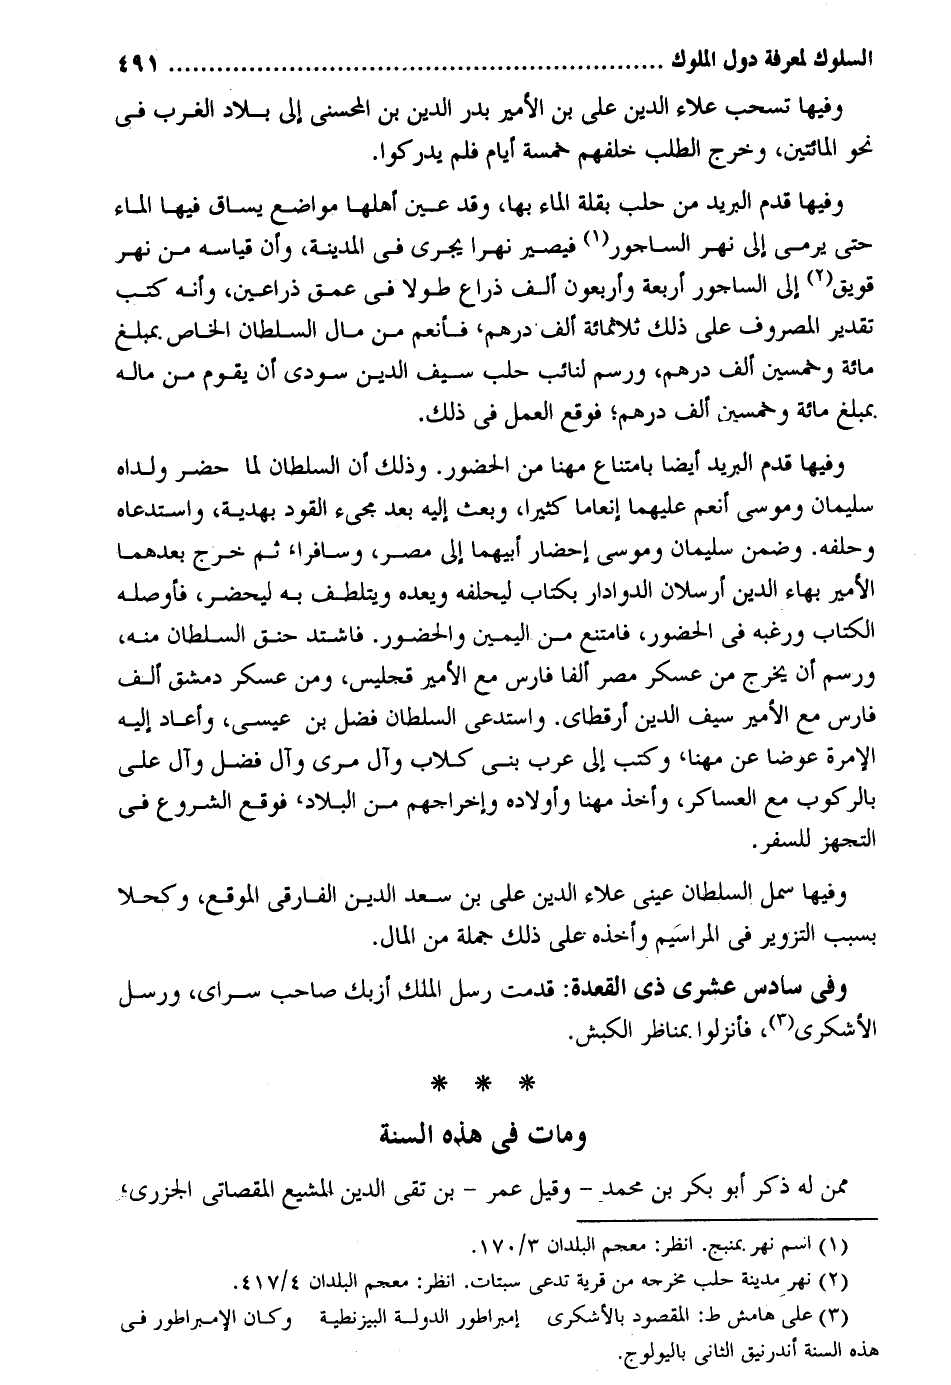 السلوك لمعرفة دول الملوك ............................................................ ٤٩١
وفيها تسحب علاء الدين على بن الأمير بدر الدين بن المحسنى إلى بلاد الغرب فى
نحو المائتين، وخرج الطلب خلفهم خمسة أيام فلم يدركوا.
وفيها قدم البريد من حلب بقلة الماء بها، وقد عين أهلها مواضع يساق فيها الماء
حتى يرمى إلى نهر الساجور(١) فيصير نهرا يجرى فى المدينة، وأن قياسه من نهر
قويق(٢) إلى الساجور أربعة وأربعون ألف ذراع طولا فى عمق ذراعين، وأنه كتب
تقدير المصروف على ذلك ثلاثمائة ألف درهم، فأنعم من مال السلطان الخاص بمبلغ
مائة وخمسين ألف درهم، ورسم لنائب حلب سيف الدين سودى أن يقوم من ماله
بمبلغ مائة وخمسين ألف درهم؛ فوقع العمل فى ذلك.
وفيها قدم البريد أيضا بامتناع مهنا من الحضور. وذلك أن السلطان لما حضر ولداه
سليمان وموسى أنعم عليهما إنعاما كثيرا، وبعث إليه بعد مجىء القود بهدية، واستدعاه
وحلفه. وضمن سليمان وموسى إحضار أبيهما إلى مصر، وسافرا، ثم خرج بعدهما
الأمير بهاء الدين أرسلان الدوادار بكتاب ليحلفه ويعده ويتلطف به ليحضر، فأوصله
الكتاب ورغبه فى الحضور، فامتنع من اليمين والحضور. فاشتد حنق السلطان منه،
ورسم أن يخرج من عسكر مصر ألفا فارس مع الأمير قجليس، ومن عسكر دمشق ألف
فارس مع الأمير سيف الدين أرقطاى. واستدعى السلطان فضل بن عيسى، وأعاد إليه
الإمرة عوضا عن مهنا، وكتب إلى عرب بنى كلاب وآل مرى وآل فضل وآل على
بالركوب مع العساكر، وأخذ مهنا وأولاده وإخراجهم من البلاد، فوقع الشروع فى
التجهز للسفر.
وفيها سمل السلطان عينى علاء الدين على بن سعد الدين الفارقى الموقع، وكحلا
بسبب التزوير فى المراسيم وأخذه على ذلك جملة من المال.
وفى سادس عشرى ذى القعدة: قدمت رسل الملك أزبك صاحب سراى، ورسل
الأشكرى(٣)، فأنزلوا بمناظر الكبش.
* * *
ومات فى هذه السنة
ممن له ذكر أبو بكر بن محمد - وقيل عمر - بن تقى الدين المشيع المقصاتى الجزرى؛
(١) اسم نهر بمنبج. انظر: معجم البلدان ٣/١٧٠.
(٢) نهر مدينة حلب مخرجه من قرية تدعى سبتات. انظر: معجم البلدان ٤/٤١٧.
(٣) على هامش ط: المقصود بالأشكرى إمبراطور الدولة البيزنطية وكان الإمبراطور فى
هذه السنة أندرنيق الثانى باليولوج.